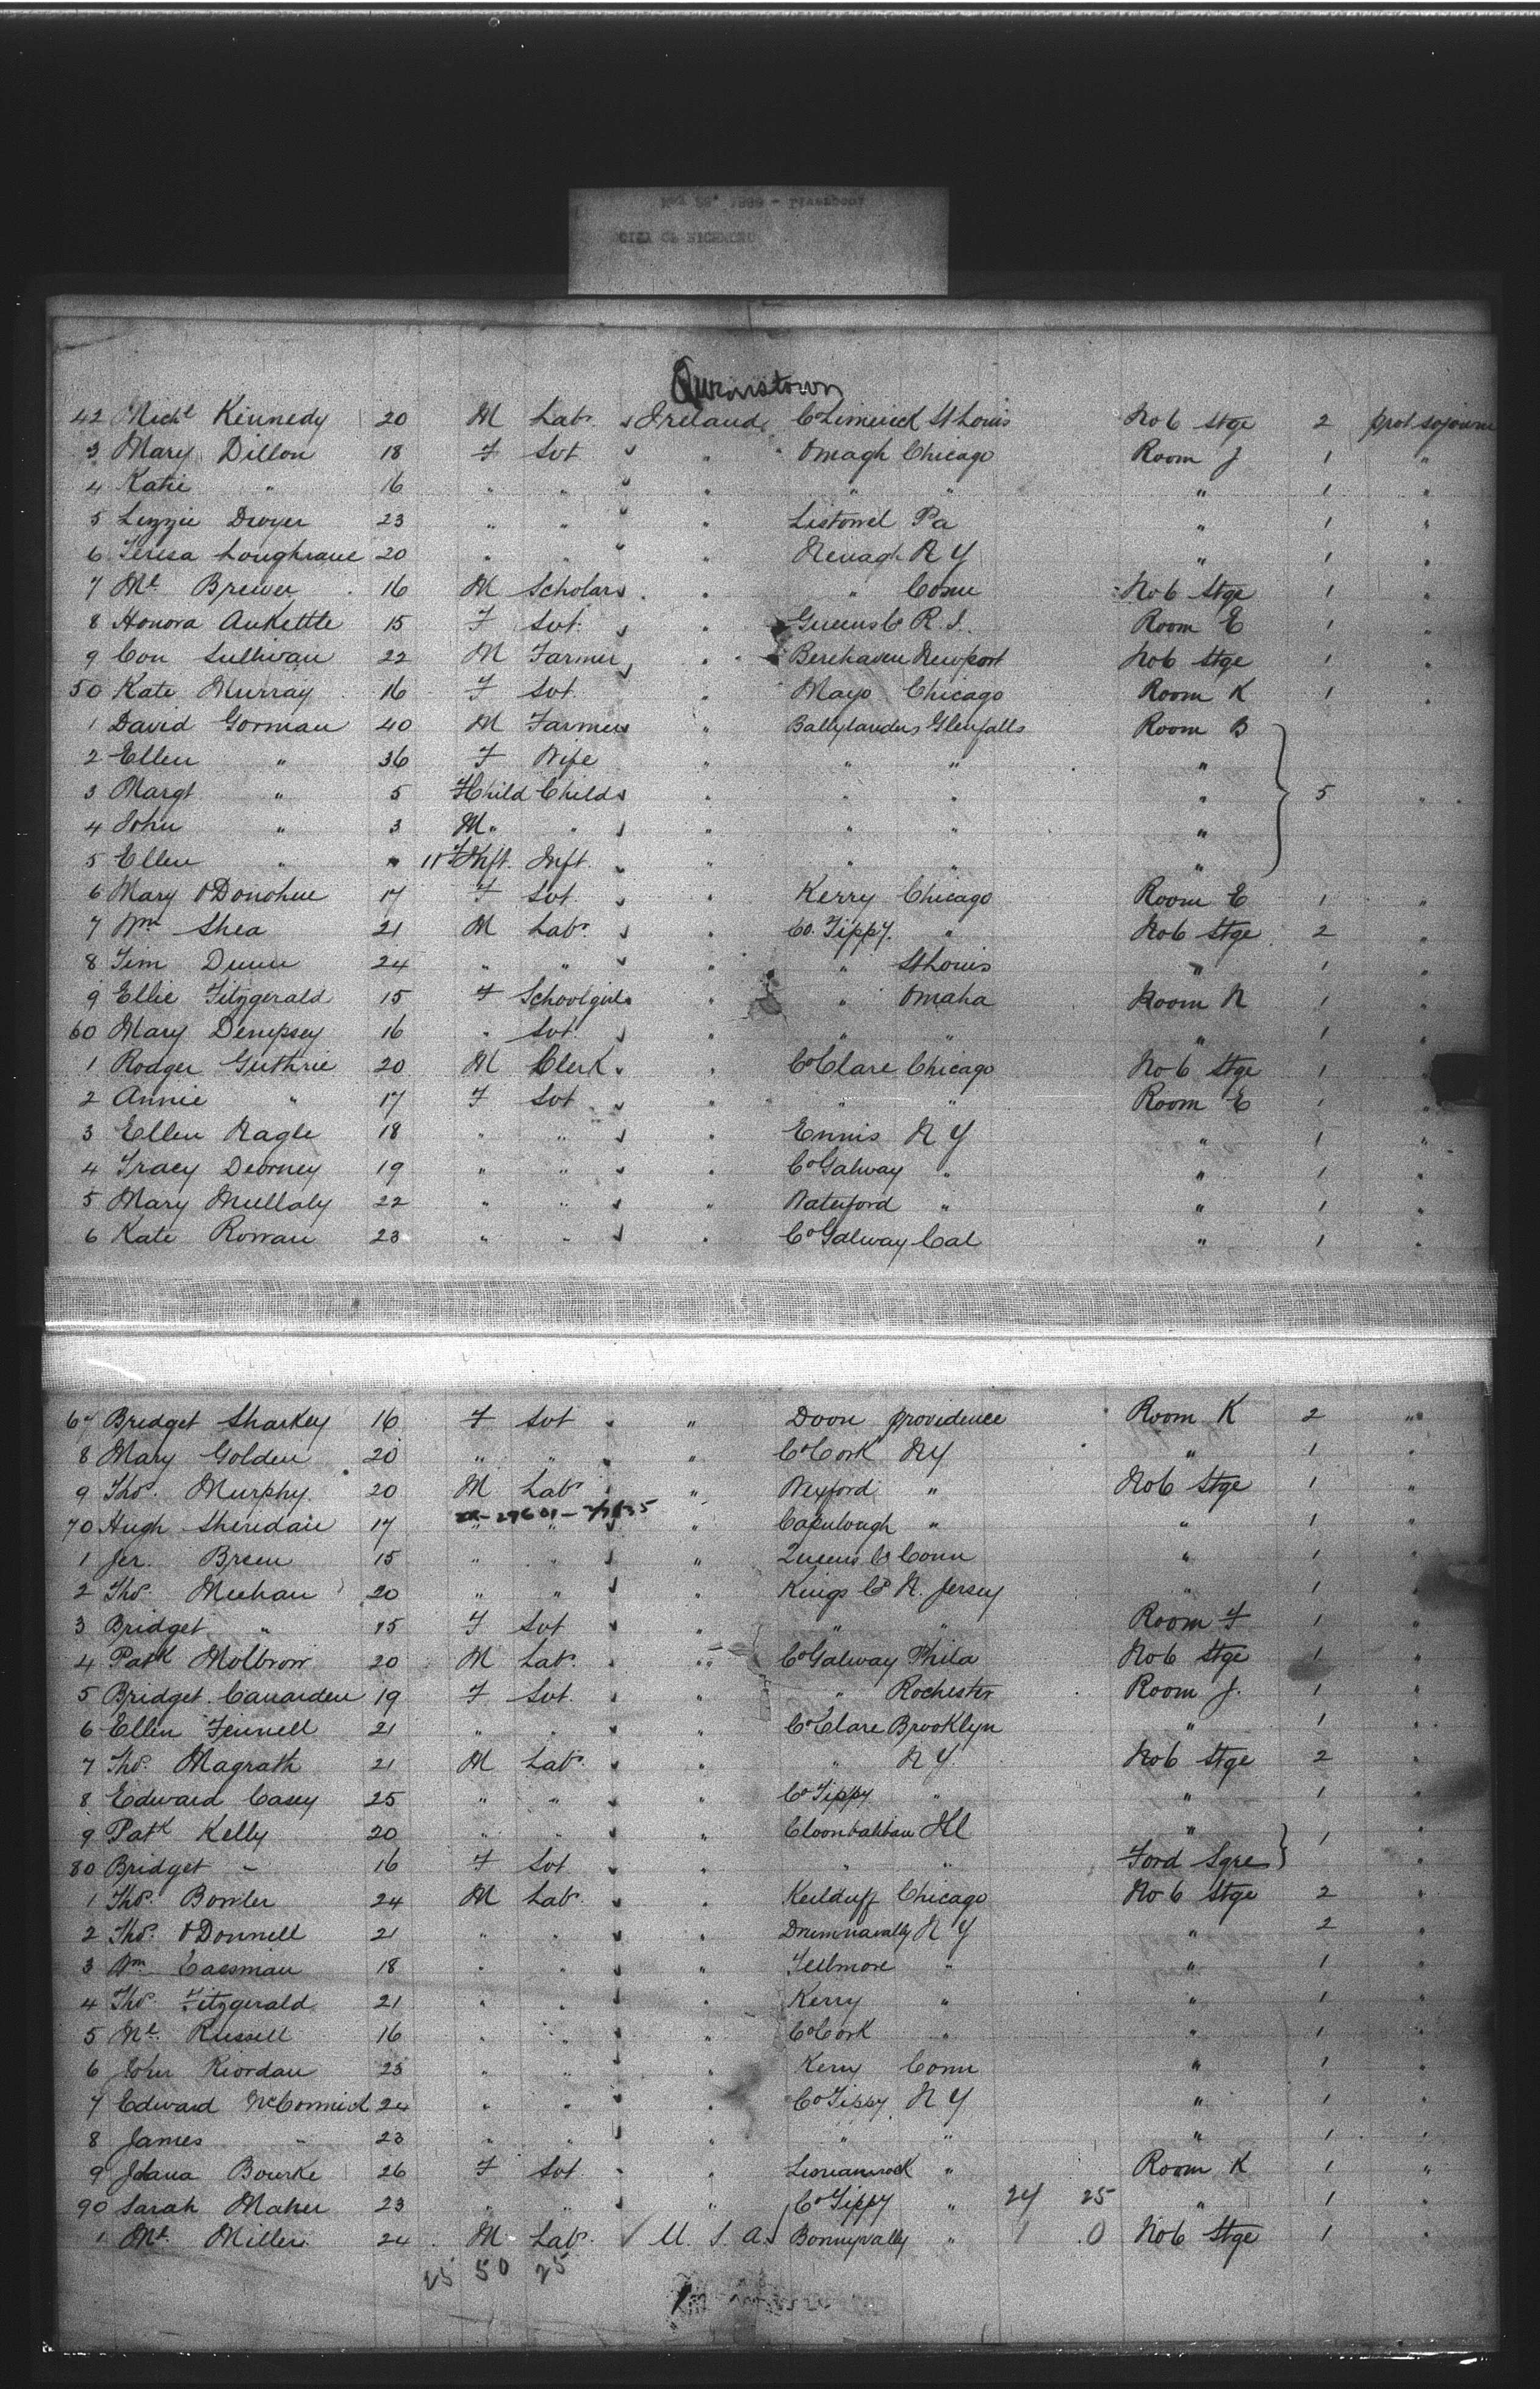 CITY OF RICHMOND
Queenstown
42 Michl Kennedy 20 M Labr Ireland Co Limerick St Louis No 6 Stge 2 prot sojourn
3 Mary Dillon 18 F Svt " Omagh Chicago Room J 1 "
4 Katie " 16 " " " " " " 1 "
5 Lizzie Dwyer 23 " " " Listowel Pa " 1 "
6 Teresa Loughrane 20 " " " Nenagh N Y " 1 "
7 Ml Brewer 16 M Scholar " " Conn No 6 Stge 1 "
8 Honora Ankettle 15 F Svt " Queens Co R. I. Room E 1 "
9 Con Sullivan 22 M Farmer " Berehaven Newport No 6 Stge 1 "
50 Kate Murray 16 F Svt " Mayo Chicago Room K 1 "
1 David Gorman 40 M Farmer " Ballylanders Glenfalls Room B
2 Ellen " 36 F Wife " " " "
3 Margt " 5 F Child Child " " " " 5 "
4 John " 3 M " " " " " "
5 Ellen " 11 F Inft. Inft. " " " "
6 Mary O'Donohue 17 F Svt " Kerry Chicago Room E 1 "
7 Wm Shea 21 M Labr " Co. Tippy. " No 6 Stge 2 "
8 Tim Dunn 24 " " " " St Louis " 1 "
9 Ellie Fitzgerald 15 F Schoolgirl " " Omaha Room N 1 "
60 Mary Dempsey 16 " Svt " " " " 1 "
1 Rodger Guthrie 20 M Clerk " Co Clare Chicago No 6 Stge 1 "
2 Annie " 17 F Svt " " " Room E 1 "
3 Ellen Nagle 18 " " " Ennis N Y " 1 "
4 Tracy 19 " " " Co Galway " " 1 "
5 Mary Mullaly 22 " " " Waterford " " 1 "
6 Kate Rowan 23 " " " Co Galway Cal " 1 "
67 Bridget Sharkey 16 F Svt " Doon providence Room K 2 "
8 Mary Golden 20 " " " Co Cork N Y " 1 "
9 Thos. Murphy 20 M Labr " Wexford " No 6 Stge 1 "
70 Hugh Sheridan 17 " " " " " 1 "
1 Jer. Breen 15 " " " Queens Co Conn " 1 "
2 Thos. Meehan 20 " " " Kings Co N. Jersey " 1 "
3 Bridget " 15 F Svt " " " Room F 1 "
4 Patk 20 M Labr " Co Galway Phila No 6 Stge 1 "
5 Bridget Canarden 19 F Svt " " Rochester Room J. 1 "
6 Ellen Fennell 21 " " " Co Clare Brooklyn " 1 "
7 Thos. Magrath 21 M Labr " " N Y No 6 Stge 2 "
8 Edward Casey 25 " " " Co Tippy " " 1 "
9 Patk Kelly 20 " " " Ill " 1 "
80 Bridget " 16 F Svt " " " Ford Sqre "
1 Thos. Bowler 24 M Labr " Keilduff Chicago No 6 Stge 2 "
2 Thos. O'Donnell 21 " " " N Y " 2 "
3 Wm Cassman 18 " " " " " 1 "
4 Thos. Fitzgerald 21 " " " Kerry " " 1 "
5 Ml. Russell 16 " " " Co Cork " " 1 "
6 John Riordan 23 " " " Kerry Conn " 1 "
7 Edward McCormick 24 " " " Co Tippy N Y " 1 "
8 James " 23 " " " " " " 1 "
9 Johana Bourke 26 F Svt " " Room K 1 "
90 Sarah Maher 23 " " " Co Tippy " 24 25 " 1 "
1 Ml. Miller 24 M Labr U. S. A. Bonnyvally " 1 0 No 6 Stge 1 "
25 50 25